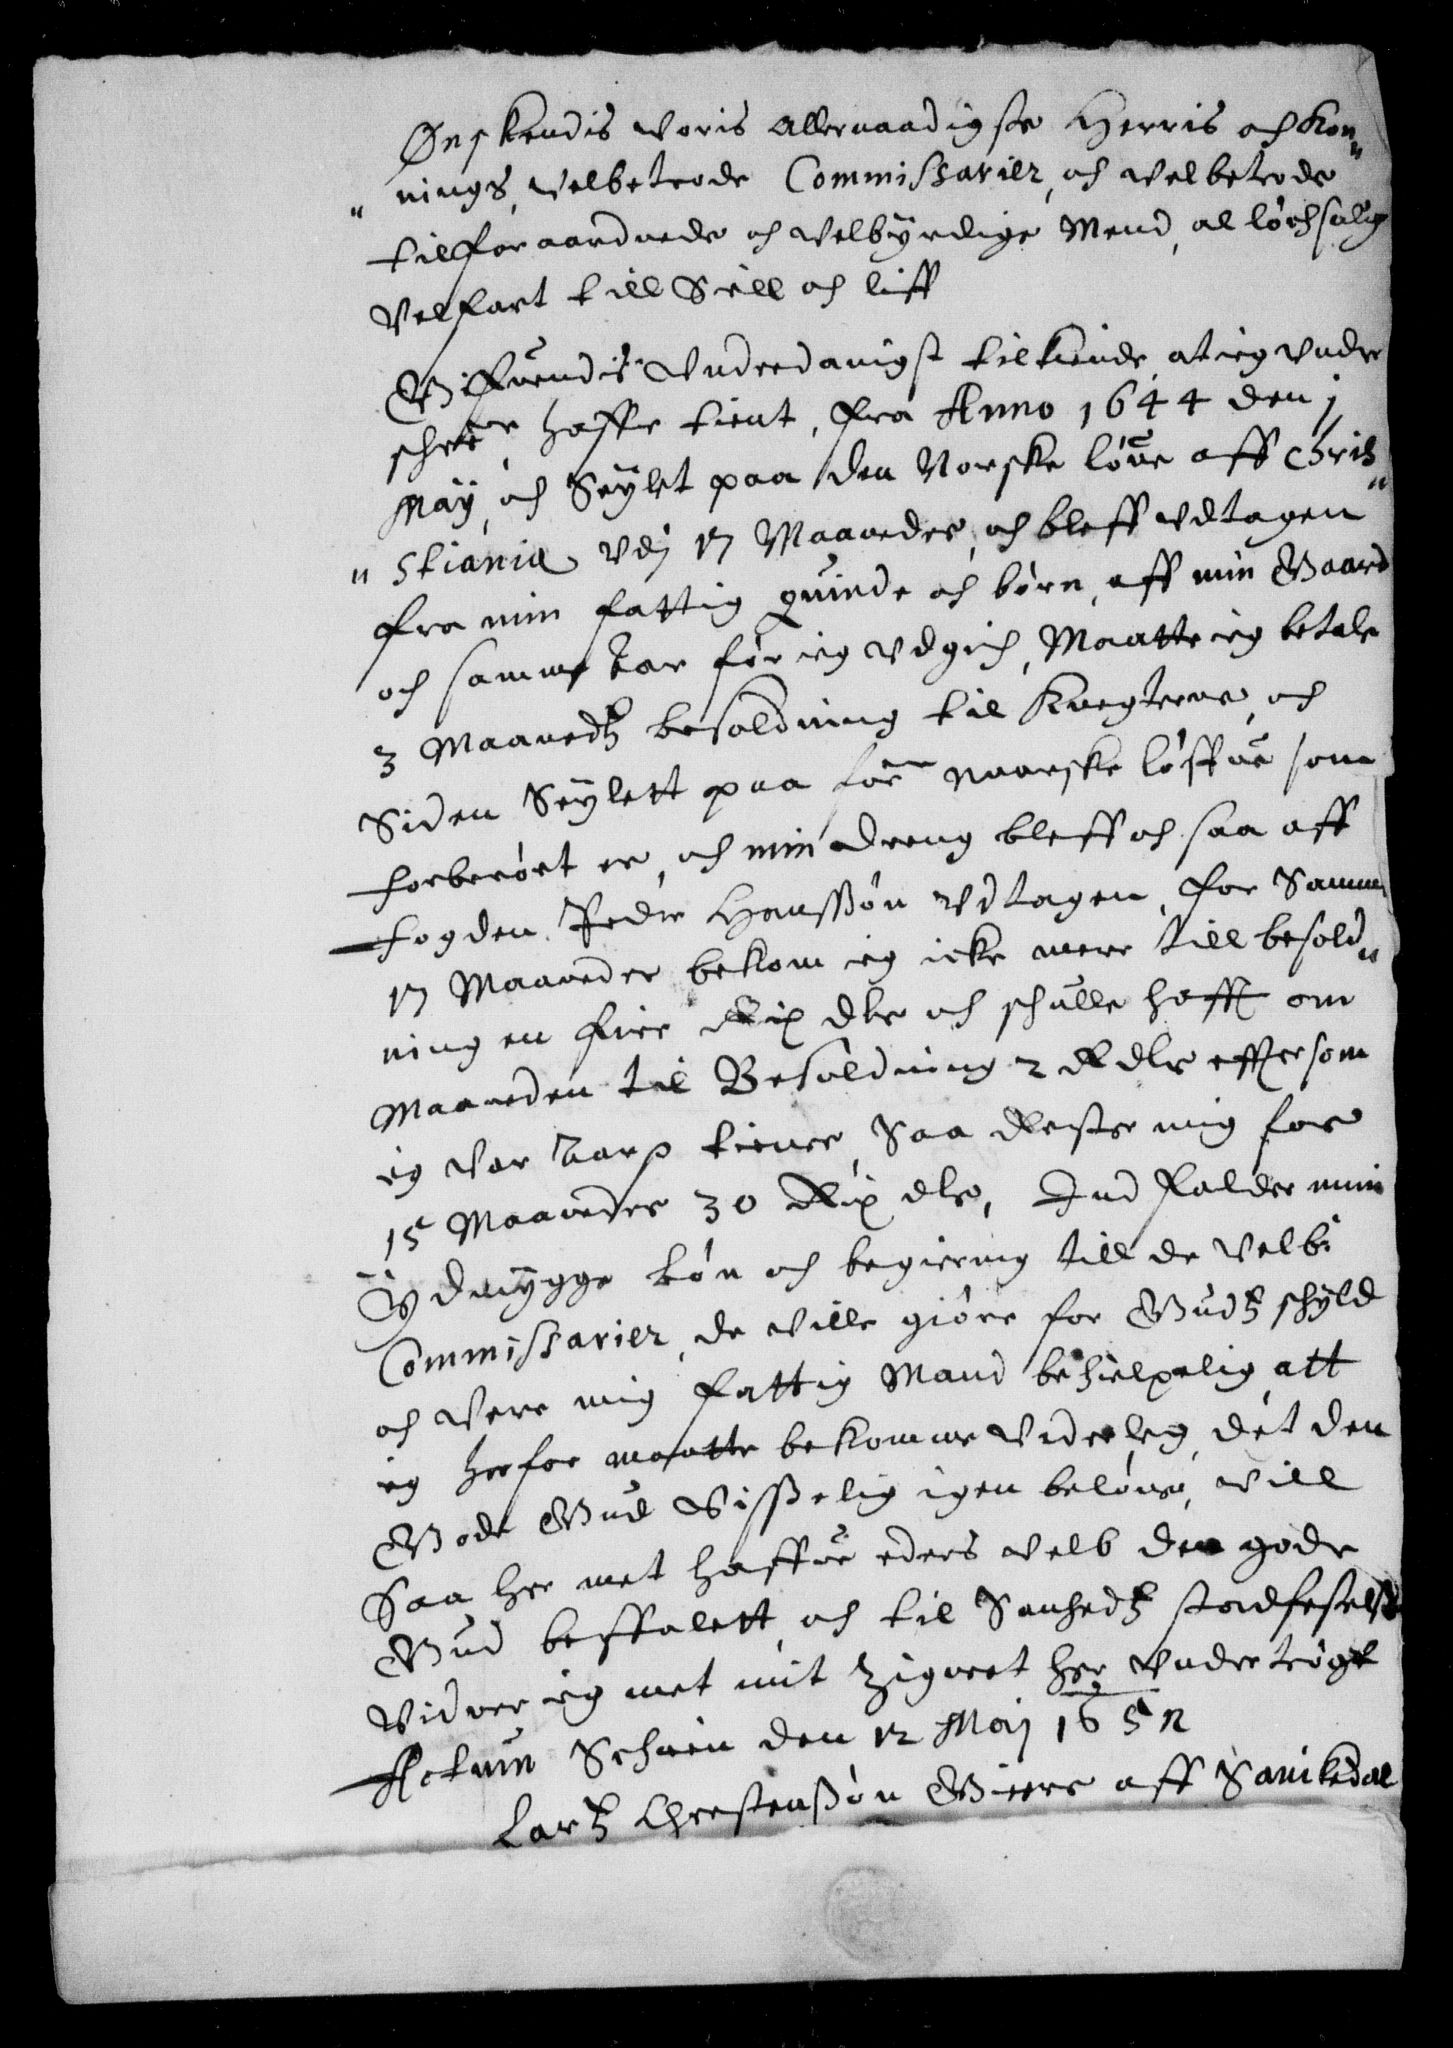 Ønskendis voris allernaadigste Herris och Kon„
„nings, velbetrode Commissarier, och velbetrode
tilforaardnede och velbÿrdige Mend, al løchsalig
velfart till Siell och liff
Giffuendis vnderdanigst tilkiende, at ieg vnder
schreffne haffr tient, fra Anno 1644 den j
Maÿ, och Seÿlet paa den Norske løue aff Chris„
„stiania vdj 17 Maaneder, och bleff vdtagen
fra min fattig quinde och børn, aff min Gaard
och samme tar før ieg vdgich, Maatte ieg betale
3 Maanedtz besoldning til Knegterne, och
Siden Seÿlett paa for: Naarske løffue som
forberørt er, och min dreng bleff och saa aff
fogden Peder Hanssøn vdtagen, for Samme
17 Maaneder bekom ieg icke mere till besold„
ning en fire Rix dlr och schulle hafft om
Maaneden til Besoldning 2 R dlr effter som
ieg var tienner, Saa Rester mig for
15 Maaneder 30 Rix dlr, Ind falder min
Ÿdmÿgge bøn och begiering till de velb:
Commissarier, de ville giøre for Gudtz schÿld
och vere mig fattig Mand behielpelig, att
ieg herfor maatte bekomme vederleg, det den
Gode Gud visselig igen beløner, vill
Saa her met haffue eders velb den gode
Gud beffalett, och til Sanhedtz stadfestelse
vidner ieg met mit Zignet her vnder trøgt
Actum Schien den 12 Maj 1652
Lartz Chrestenssøn Giere aff Sanikedal